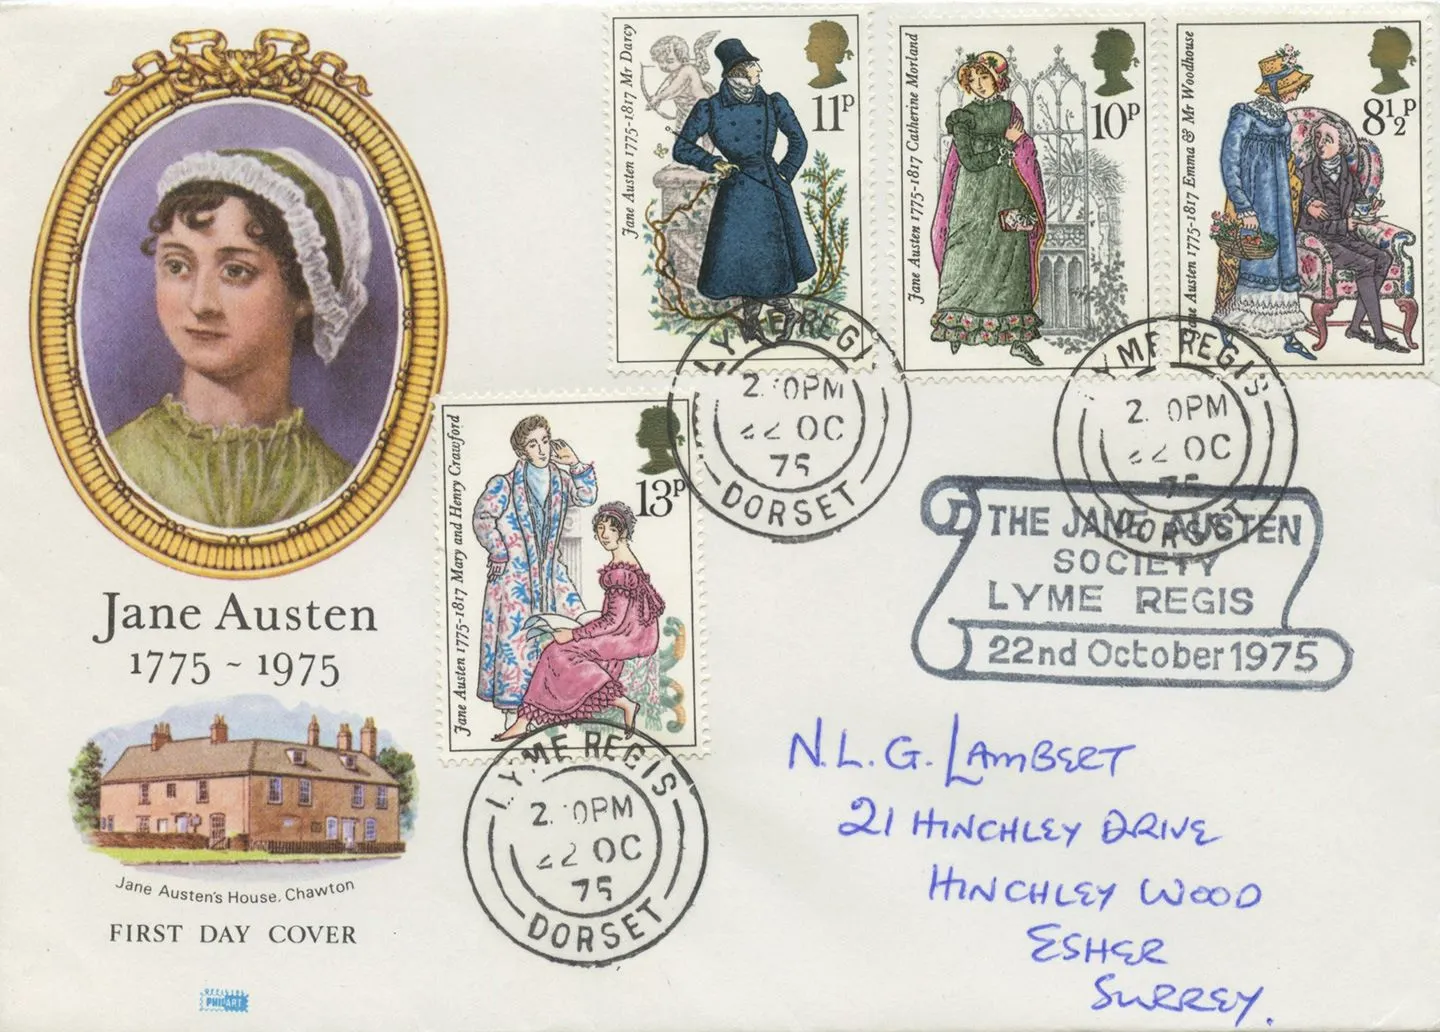 Jane Austen 1775-1817 Mr Darcy
11p
Jane Austen 1775-1817 Catherine Morland
10p
Jane Austen 1775-1817 Emma & Mr Woodhouse
8½p
Jane Austen 1775-1817 Mary and Henry Crawford
13p
LYME REGI
0PM
22 OC
75
DORSET
YME REGIS
0PM
22 OC
75
DORSET
THE JANE AUSTEN
SOCIETY
LYME REGIS
22nd October 1975
LYME REGIS
0PM
22 OC
75
DORSET
Jane Austen
1775 ~ 1975
Jane Austen's House, Chawton
FIRST DAY COVER
PHILART
N.L.G. LAMBERT
21 HINCHLEY DRIVE
HINCHLEY WOOD
ESHER
SURREY.